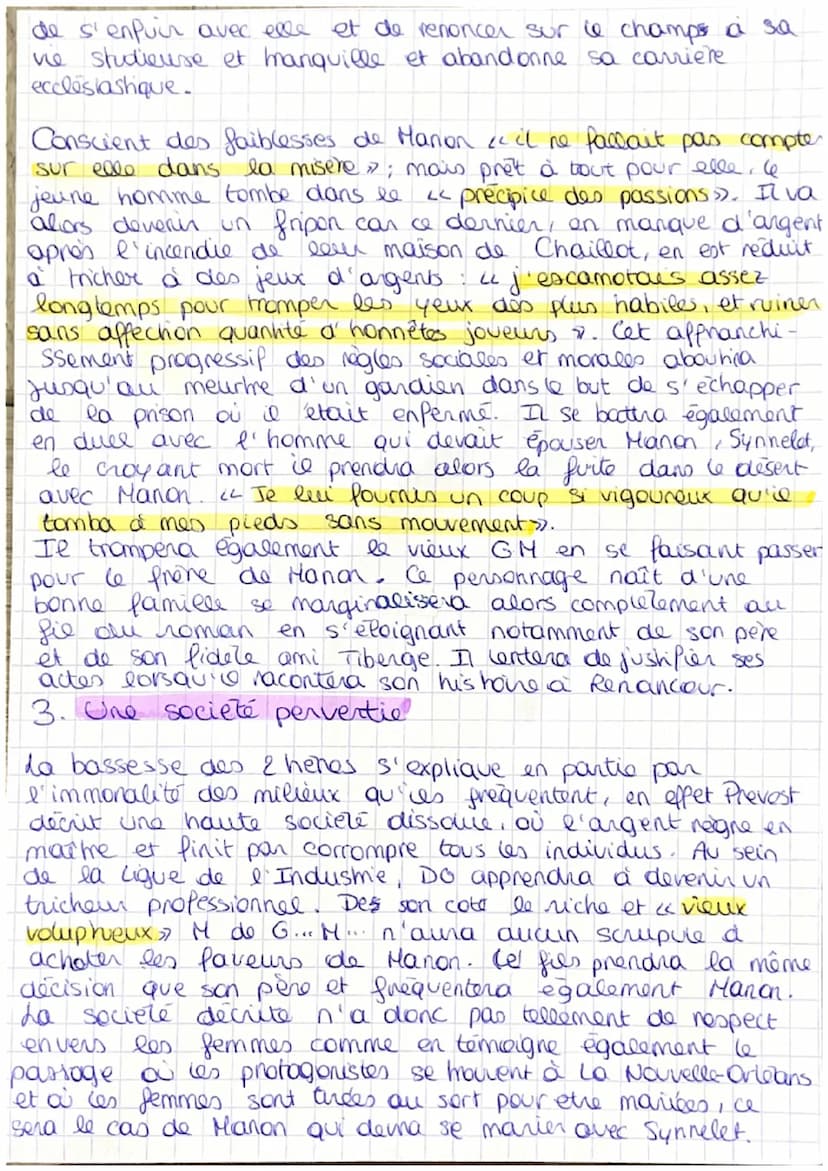 de s'enfuir avec elle et de renoncer sur le champs à sa
vie studieuse et tranquille et abandonne sa carrière
ecclésiastique.
Conscient des faiblesses de Manon « il ne fallait pas compter
sur elle dans la misère » ; mais prêt à tout pour elle, le
jeune homme tombe dans le « précipice des passions ». Il va
alors devenir un fripon car ce dernier, en manque d'argent
après l'incendie de leur maison de Chaillot, en est réduit
à tricher à des jeux d'argents : « j'escamotais assez
longtemps pour tromper les yeux des plus habiles, et ruiner
sans affection quantité d'honnêtes joueurs ». Cet affranchi-
ssement progressif des règles sociales et morales aboutira
jusqu'au meurtre d'un gardien dans le but de s'échapper
de la prison où il était enfermé. Il se battra également
en duel avec l'homme qui devait épouser Manon, Synnelet,
le croyant mort il prendra alors la fuite dans le désert
avec Manon. « Je lui fournis un coup si vigoureux qu'il
tomba à mes pieds sans mouvement ».
Il trompera également le vieux GM en se faisant passer
pour le frère de Manon. Ce personnage naît d'une
bonne famille se marginalisera alors complètement au
fil du roman en s'éloignant notamment de son père
et de son fidèle ami Tiberge. Il tentera de justifier ses
actes lorsqu'il racontera son histoire à Renancour.
3. Une société pervertie
La bassesse des 2 héros s'explique en partie par
l'immoralité des milieux qu'ils fréquentent, en effet Prevost
décrit une haute société dissolue, où l'argent règne en
maître et finit par corrompre tous les individus. Au sein
de la Ligue de l'Industrie, DG apprendra à devenir un
tricheur professionnel. Des son coté le riche et « vieux
voluptueux » M de G...M... n'aura aucun scrupule à
acheter les faveurs de Manon. Cel fils prendra la même
décision que son père et fréquentera également Manon.
La société décrite n'a donc pas tellement de respect
envers les femmes comme en témoigne également le
passage où les protagonistes se trouvent à La Nouvelle-Orléans
et où les femmes sont tirées au sort pour etre mariées, ce
sera le cas de Manon qui devra se marier avec Synnelet.